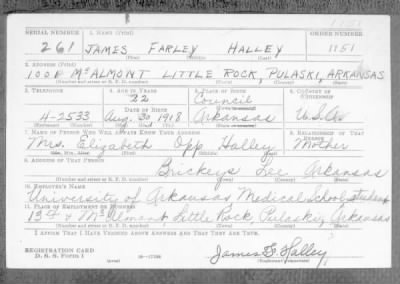 1151
SERIAL NUMBER 1. NAME (Print) ORDER NUMBER
261 JAMES FARLEY HALLEY 1151
(First) (Middle) (Last)
2. ADDRESS (Print)
1008 McALMONT LITTLE ROCK, PULASKI, ARKANSAS
(Town) (County) (State)
3. TELEPHONE 4. AGE IN YEARS 5. PLACE OF BIRTH 6. COUNTRY OF CITIZENSHIP
22 Council
DATE OF BIRTH
4-2533 Aug. 30 1918 Arkansas U.S.A.
7. NAME OF PERSON WHO WILL ALWAYS KNOW YOUR ADDRESS 8. RELATIONSHIP OF THAT PERSON
Mrs. Elizabeth Opp Halley Mother
9. ADDRESS OF THAT PERSON
Brickeys Lee Arkansas
10. EMPLOYER'S NAME
University of Arkansas Medical School student
11. PLACE OF EMPLOYMENT OR BUSINESS
13th & McAlmont Little Rock Pulaski, Arkansas
I AFFIRM THAT I HAVE VERIFIED ABOVE ANSWERS AND THAT THEY ARE TRUE.
REGISTRATION CARD
D. S. S. Form 1 (over) 16—17105 James F. Halley
(Registrant's signature)